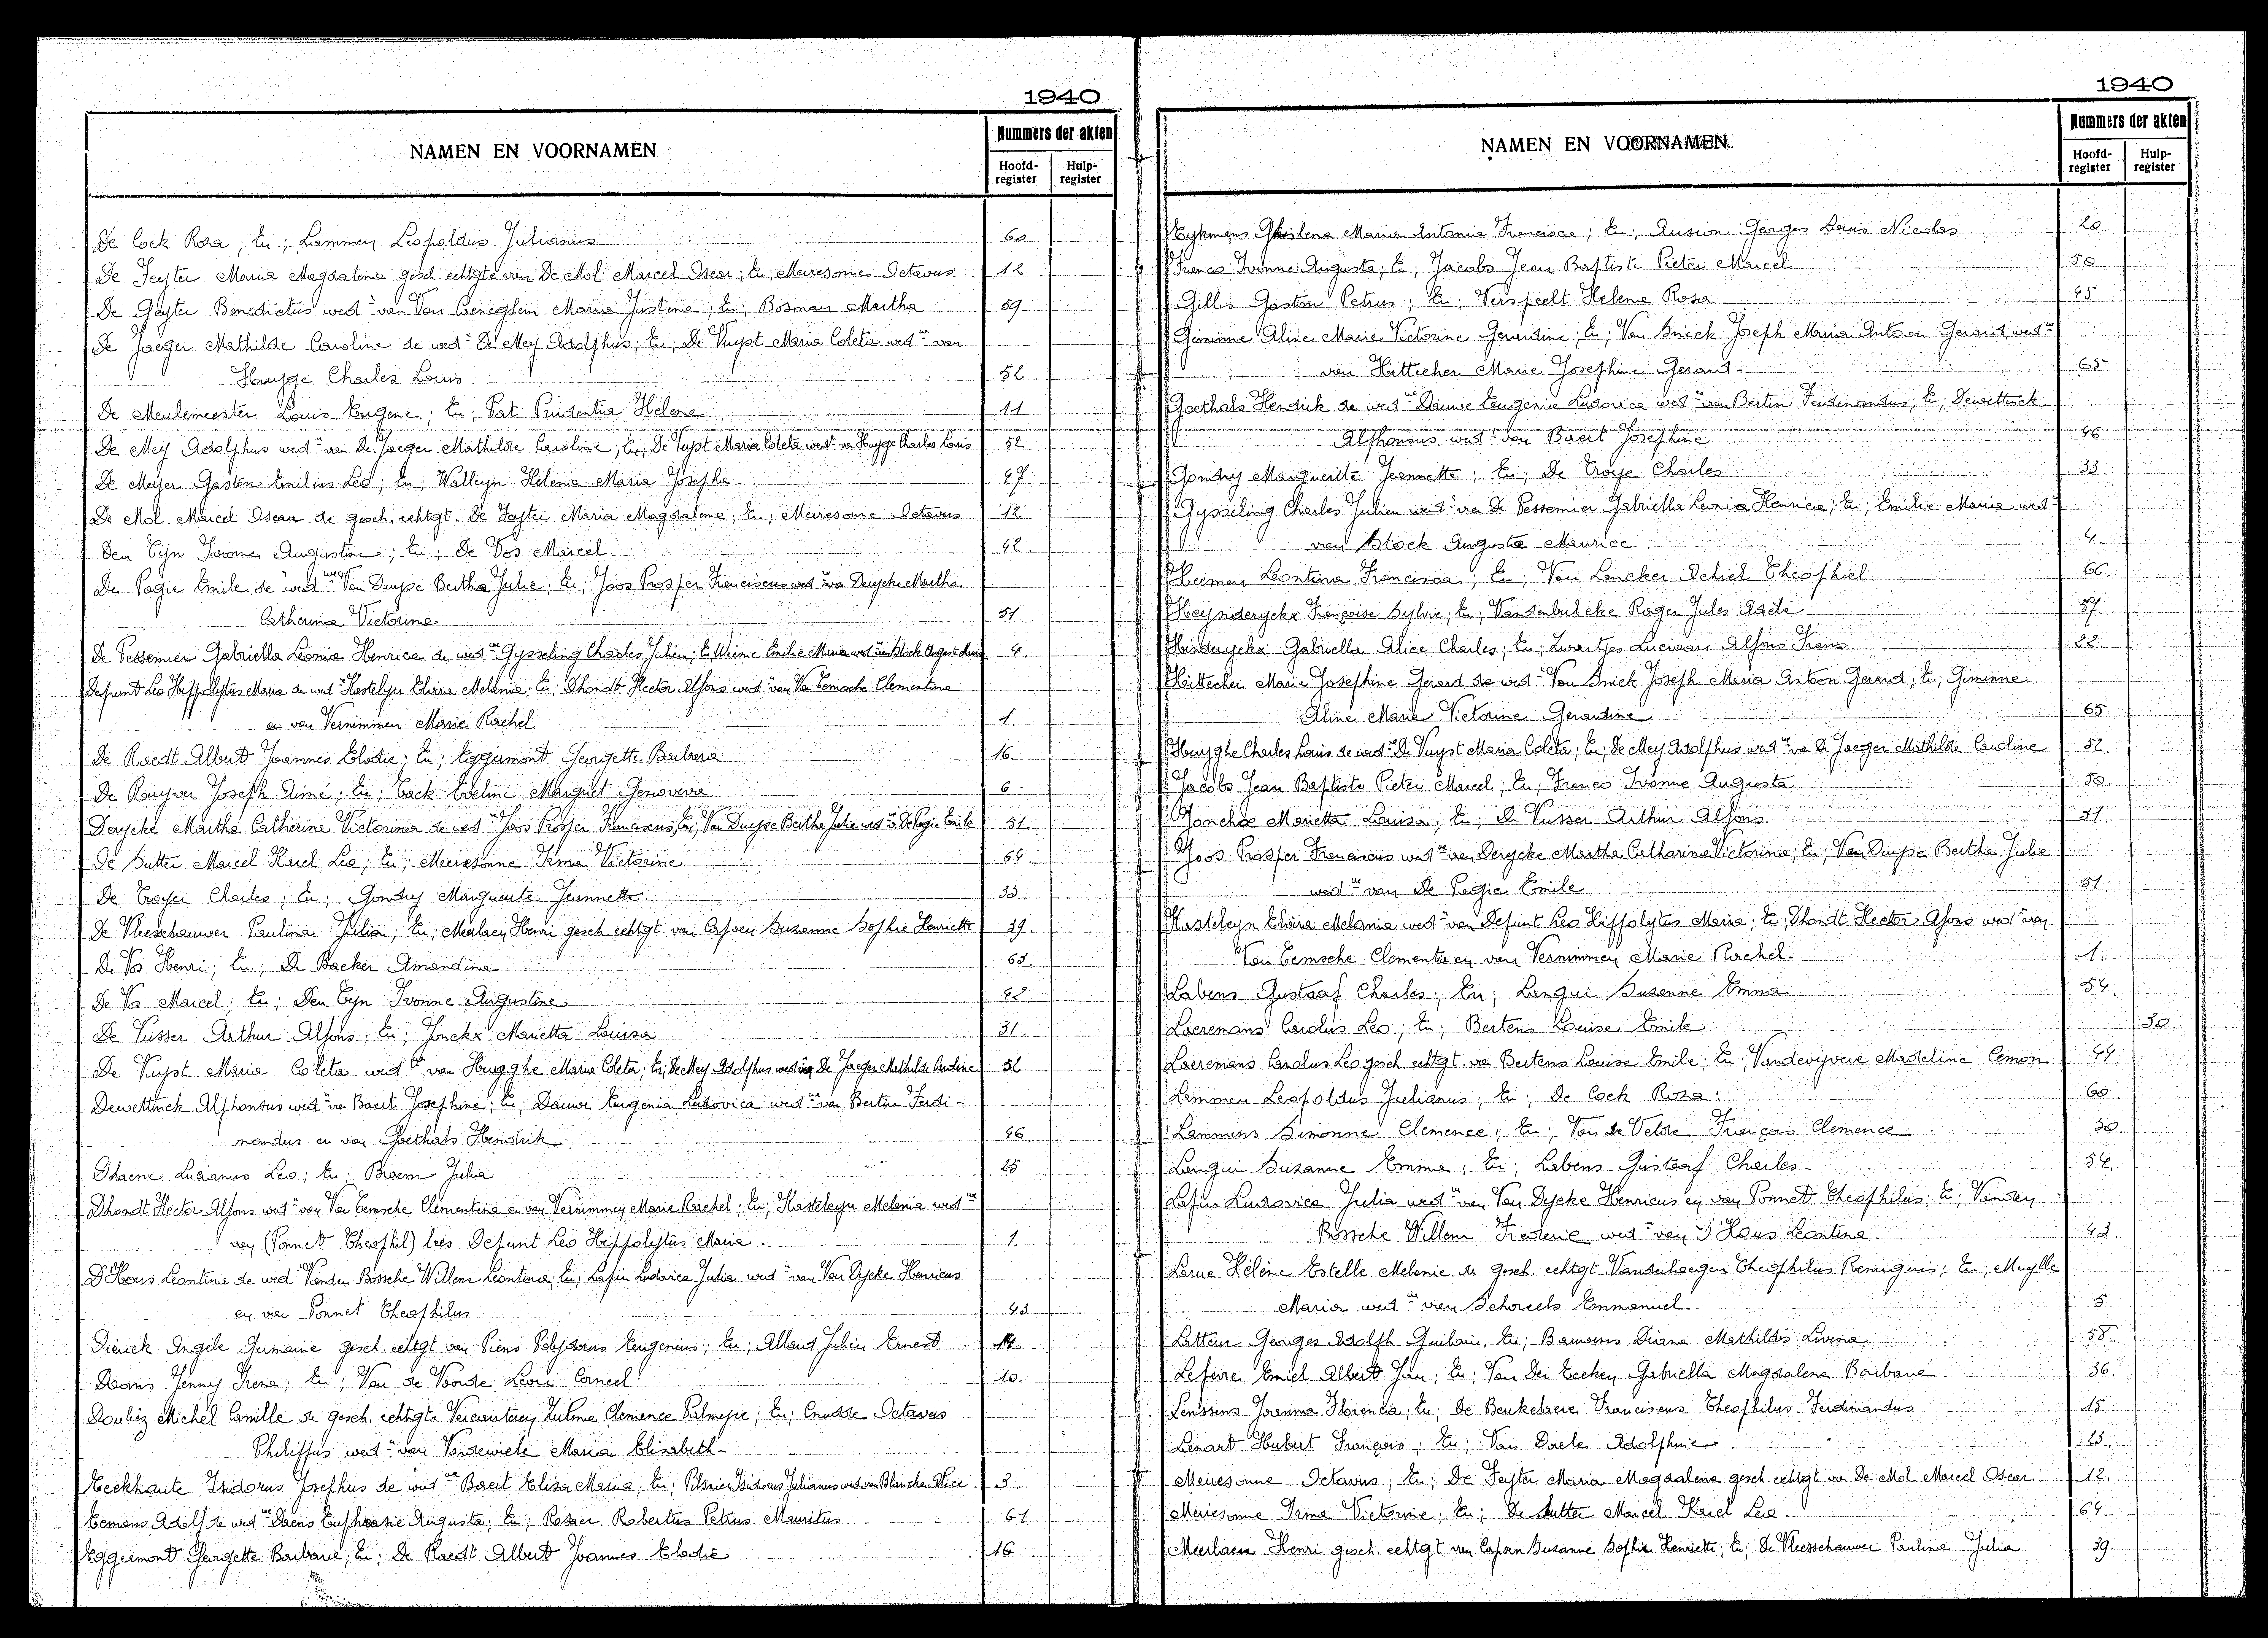 1940
NAMEN EN VOORNAMEN
Nummers der akten
Hoofd-register
Hulp-register
De Cock Rosa; En; Lammen Leopoldus Julianus 60
De Feyter Maria Magdalena gesch. echtgte van De Mol Marcel Oscar; En; Meiresonne Octavus 12
De Geyter Benedictus wedr van Van Ceneghem Maria Justina; En; Bosman Martha 59
De Jaeger Mathilde Caroline de wedr De Mey Adolphus; En; De Vuyst Maria Coleta wedwe van
Huyge Charles Louis 52
De Meulemeester Louis Eugene; En; Pat Prudentia Helena 11
De Mey Adolphus wedr van De Jaeger Mathilde Caroline; En; De Vuyst Maria Coleta wedwe van Huyge Charles Louis 52
De Meyer Gaston Emilius Leo; En; Walleyn Helena Maria Josepha 47
De Mol Marcel Oscar de gesch. echtgt. De Feyter Maria Magdalena; En; Meiresonne Octavus 12
Den Tijn Ivonne Augustine; En; De Vos Marcel 42
De Pagie Emile de wedwe Van Duyse Bertha Julie; En; Joos Prosper Franciscus wedr van Derycke Martha
Catherina Victorine 51
De Pessemier Gabriella Leonia Henrica de wedr Gysseling Charles Julien; En; Wieme Emilie Maria wedwe van Block August Maurice 4.
Defrunt Leo Hippolytus Maria de wedwe Kastelyn Elvira Melania; En; Dhondt Hector Alfons wedr van Van Temsche Clementina
en van Vernimmen Marie Rachel 1
De Raedt Albert Joannes Elodie; En; Eggermont Georgette Barbara 16
De Ruyver Joseph Aimé; En; Tack Eveline Margriet Genoveva 6
Derycke Martha Catherine Victorina de wedr Joos Prosper Franciscus; En; Van Duyse Bertha Julie wedwe v. De Pagie Emile 51.
De Sutter Marcel Karel Leo; En; Meiresonne Irma Victorine 64
De Troyer Charles; En; Gondry Marguerite Jeannette 33
De Vleeschauwer Paulina Julia; En; Meerlaen Henri gesch. echtgt. van Capoen Suzanne Sophie Henriette 39.
De Vos Henri; En; De Backer Amandina 63.
De Vos Marcel; En; Den Tyn Ivonne Augustine 42
De Vusser Arthur Alfons; En; Jonckx Marietta Louisa 31.
De Vuyst Maria Coleta wedwe van Huyghe Maria Coleta; En; De Mey Adolphus wedr van De Jaeger Mathilde Caroline 52
Dewettinck Alphonsus wedr van Baert Josephine; En; Dauwe Eugenia Ludovica wedwe van Bertin Ferdi-
nandus en van Goethals Hendrik 46
Dhaene Lucianus Leo; En; Braem Julia 25
Dhondt Hector Alfons wedr van Van Temsche Clementina en van Vernimmen Marie Rachel; En; Kasteleyn Melania wedwe
van (Ponnet Theophil) lees Defunt Leo Hippolytus Maria. 1.
D'Hous Leontina de wedr Vanden Bossche Willem Leontina; En; Lapin Ludovica Julia wedwe van Van Dycke Henricus
en van Ponnet Theophilus 43
Dierick Angèle Germaine gesch. echtgt van Piens Polydorus Eugenius; En; Allaert Julien Ernest 14.
Dooms Jenny Irena; En; Van de Voorde Leon Corneel 10.
Douliez Michel Camille de gesch. echtigte Vercauteren Zulma Clemence Palmyre; En; Cnudde Octavus
Philippus wedr van Vandewiele Maria Elisabeth
Eeckhaute Isidorus Josephus de wedwe Baert Elisa Maria; En; Pilsnier Isidorus Julianus wedr van Blancke Alice 3
Eemans Adolf de wedwe Daens Euphrasie Augusta; En; Rosaer Robertus Petrus Mauritus 61
Eggermont Georgette Barbara; En; De Raedt Albert Joannes Elodie 16
1940
NAMEN EN VOORNAMEN
Nummers der akten
Hoofd-register
Hulp-register
Eykmans Ghislena Maria Antonia Francisca; En; Ausion Georges Louis Nicolas 20.
Franco Ivonne Augusta; En; Jacobs Jean Baptiste Pieter Marcel 50
Gillis Gaston Petrus; En; Verspeelt Helena Rosa 45
Giminne Aline Marie Victorine Gerardine; En; Van Snick Joseph Maria Antoon Gerard, wedr
van Hittecher Marie Josephine Gerard 65
Goethals Hendrik de wedwe Dauwe Eugenia Ludovica wedwe van Bertin Ferdinandus; En; Dewettinck
Alphonsus wedr van Baert Josephine 46
Gondry Marguerite Jeannette; En; De Troye Charles 33.
Gysseling Charles Julien wedr van De Pessemier Gabriella Leonia Henrica; En; Emilie Maria wedwe
van Block Auguste Maurice 4.
Heeman Leontina Francisca; En; Van Lancker Achiel Theophiel 66.
Heynderyckx Françoise Sylvie; En; Vandenbulcke Roger Jules Adèle 57
Hinderyckx Gabriella Alice Charles; En; Zwartjes Luciaan Alfons Frans 22.
Hittecher Marie Josephine Gerard de wedr Van Snick Joseph Maria Antoon Gerard; En; Giminne
Aline Maria Victorine Gerardine 65
Huyghe Charles Louis de wedwe De Vuyst Maria Coleta; En; De Mey Adolphus wedr van De Jaeger Mathilde Caroline 52.
Jacobs Jean Baptiste Pieter Marcel; En; Franco Ivonne Augusta 50.
Jonckx Marietta Louisa; En; De Vusser Arthur Alfons 31.
Joos Prosper Franciscus wedr van Derycke Martha Catharina Victorina; En; Van Duyse Bertha Julie
wedwe van De Pagie Emile 51.
Kasteleyn Elvira Melania wedwe van Defunt Leo Hippolytus Maria; En; Dhondt Hector Alfons wedr van
Van Temsche Clementia en van Vernimmen Marie Rachel. 1.
Labens Gustaaf Charles; En; Langui Suzanne Emma 54.
Laeremans Carolus Leo; En; Bertens Louise Emile 30.
Laeremans Carolus Leo gesch. echtgt. van Bertens Louise Emile; En; Vandevijvere Madeline Cemon 44
Lammen Leopoldus Julianus; En; De Cock Rosa: 60
Lammens Simonne Clemence; En; Van de Velde François Clemence 30.
Langui Suzanne Emma; En; Labens Gustaaf Charles 54.
Lapin Ludovica Julia wedwe van Van Dycke Henricus en van Ponnet Theophilus; En; Vanden
Bossche Willem Frederic wedr van D'Hous Leontina. 43.
Larue Hélène Estelle Melanie de gesch. echtgt Vanderhaegen Theophilus Remiguis; En; Muylle
Maria wedwe van Schoreels Emmanuel. 5
Latteur Georges Adolph Guilain; En; Bauwens Diana Mathildis Livina 58
Lefevre Emiel Albert Jan; En; Van Der Eecken Gabriella Magdalena Barbara 36.
Lenssens Joanna Florencia; En; De Beukelaere Franciscus Theophilus Ferdinandus 15
Lénart Hubert François; En; Van Daele Adolphine 23.
Meiresonne Octavus; En; De Feyter Maria Magdalena gesch. echtgt van De Mol Marcel Oscar 12.
Meiresonne Irma Victorine; En; De Sutter Marcel Karel Leo. 64
Meerlaen Henri gesch. echtgt van Capoen Suzanne Sophie Henriette; En; De Vleesschauwer Paulina Julia 39.